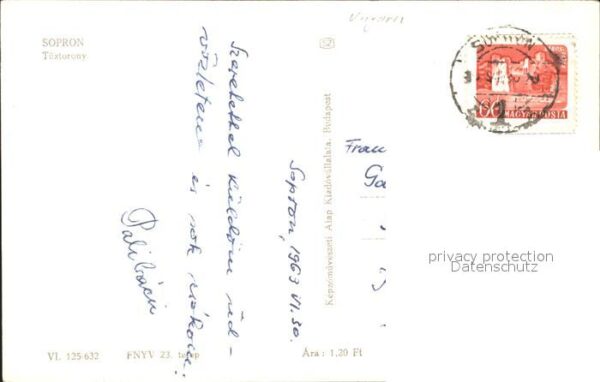 SOPRON
Tűztorony
Szeretettel küldöm üd-
vözletem és sok
Pali bácsi
Sopron, 1963 VI. 30.
Képzőművészeti Alap Kiadóvállalata, Budapest
Frau
Ga
SOPRON
60
MAGYAR POSTA
privacy protection
Datenschutz
VI. 125-632 FNYV 23. telep Ára: 1,20 Ft